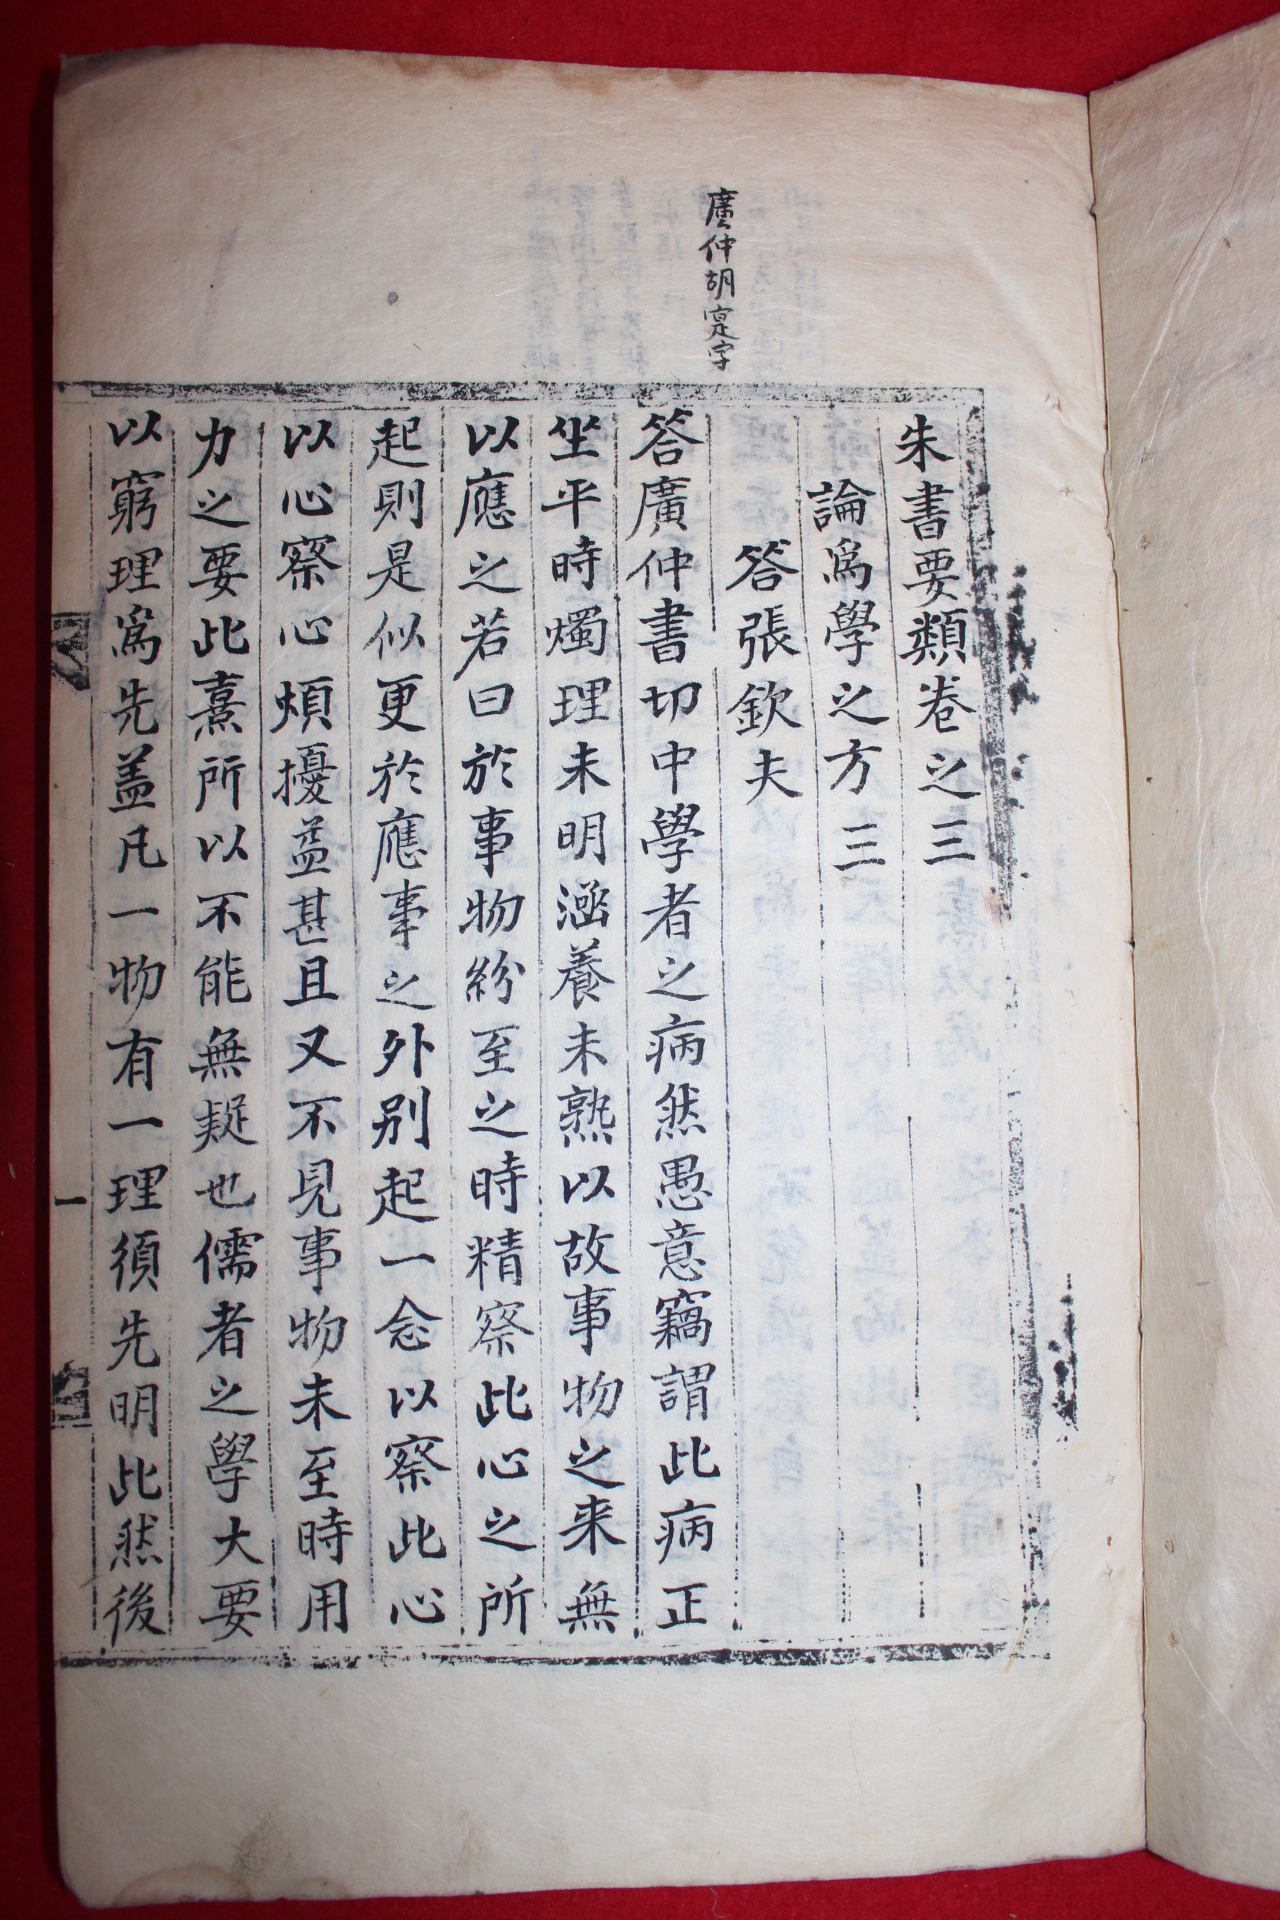 廣仲胡寔字
朱書要類卷之三
論爲學之方三
答張欽夫
答廣仲書切中學者之病然愚意竊謂此病正
坐平時燭理未明涵養未熟以故事物之来無
以應之若曰於事物紛至之時精察此心之所
起則是似更於應事之外别起一念以察此心
以心察心煩擾益甚且又不見事物未至時用
力之要此熹所以不能無疑也儒者之學大要
以窮理爲先盖凡一物有一理須先明此然後
一